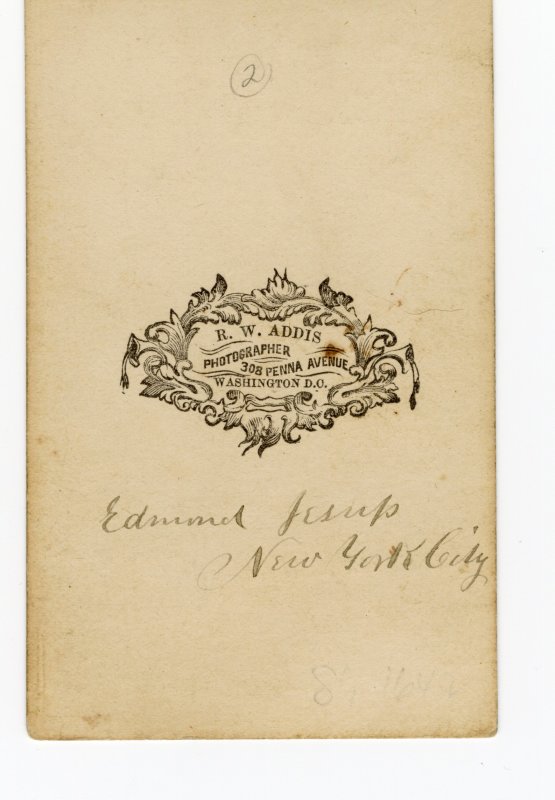 2
R. W. ADDIS
PHOTOGRAPHER
308 PENNA AVENUE
WASHINGTON D.C.
Edmond Jesup
New York City